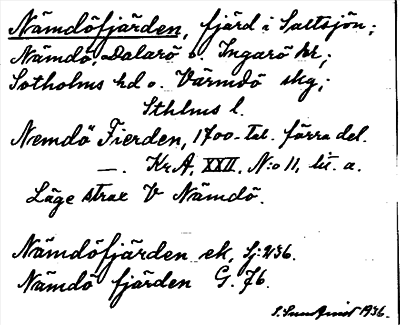 Nämdöfjärden, fjärd i Saltsjön;
Nämdö, Dalarö o. Ingarö kr;
Sotholms hd o. Värmdö skg;
Sthlms l.
Nemdö Fierden, 1700-tal. förra del.
—. Kr.A, XXII, N:o 11, lit. a.
Läge strax V Nämdö.
Nämdöfjärden ek, Sj: 236.
Nämdö fjärden G. 76.
1936.